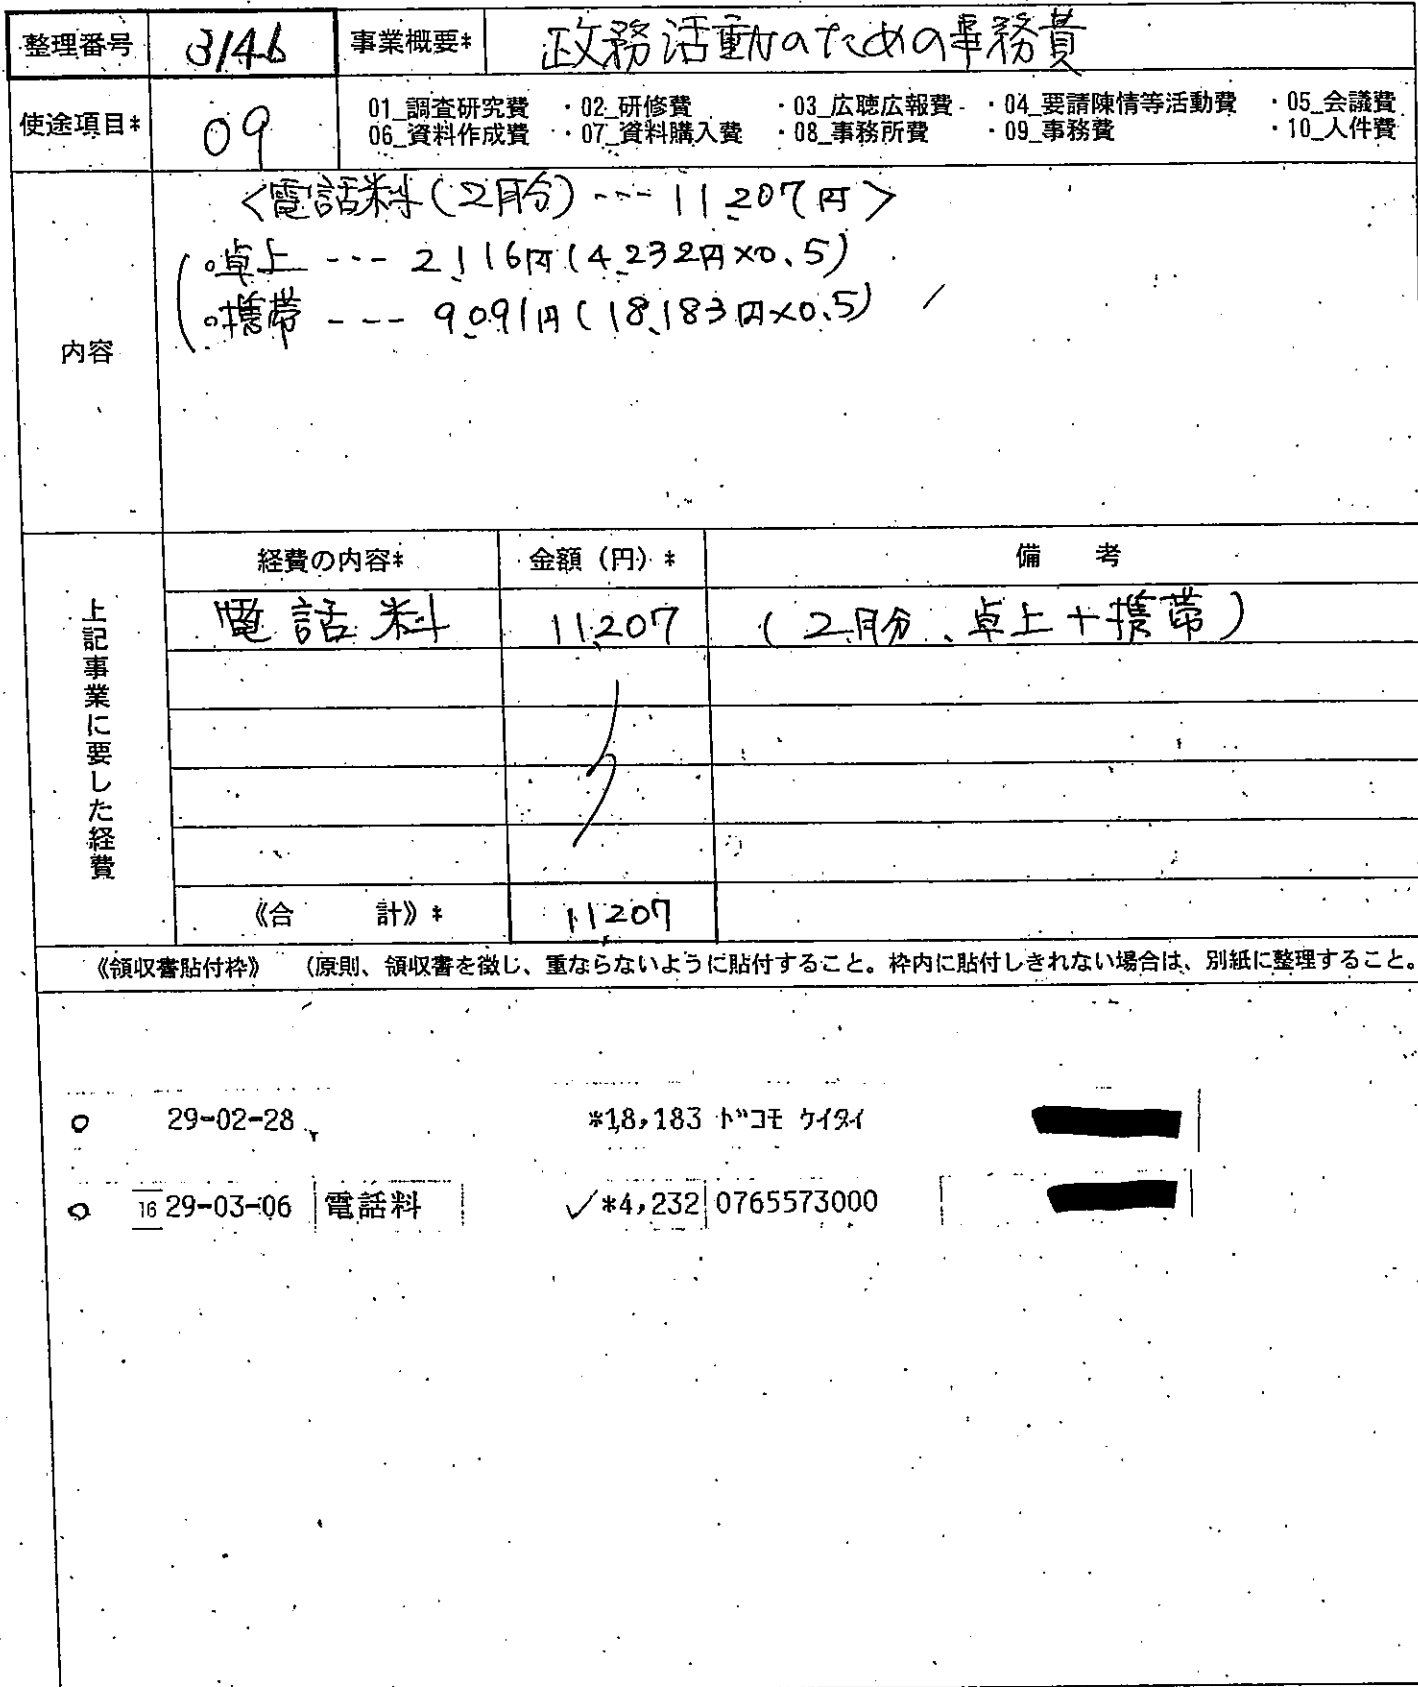 整理番号 3146 事業概要* 政務活動のための事務費
使途項目* 09 01_調査研究費 ・02_研修費 ・03_広聴広報費 ・04_要請陳情等活動費 ・05_会議費
06_資料作成費 ・07_資料購入費 ・08_事務所費 ・09_事務費 ・10_人件費
内容
<電話料(2月分)---11,207円>
○卓上 --- 2,116円(4,232円×0.5)
○携帯 --- 9,091円(18,183円×0.5)
上記事業に要した経費
経費の内容* 金額(円)* 備 考
電話料 11,207 (2月分、卓上+携帯)
《合 計》* 11,207
《領収書貼付枠》 (原則、領収書を徴し、重ならないように貼付すること。枠内に貼付しきれない場合は、別紙に整理すること。
29-02-28 *18,183 ドコモ ケイタイ
16 29-03-06 電話料 ✓*4,232 0765573000